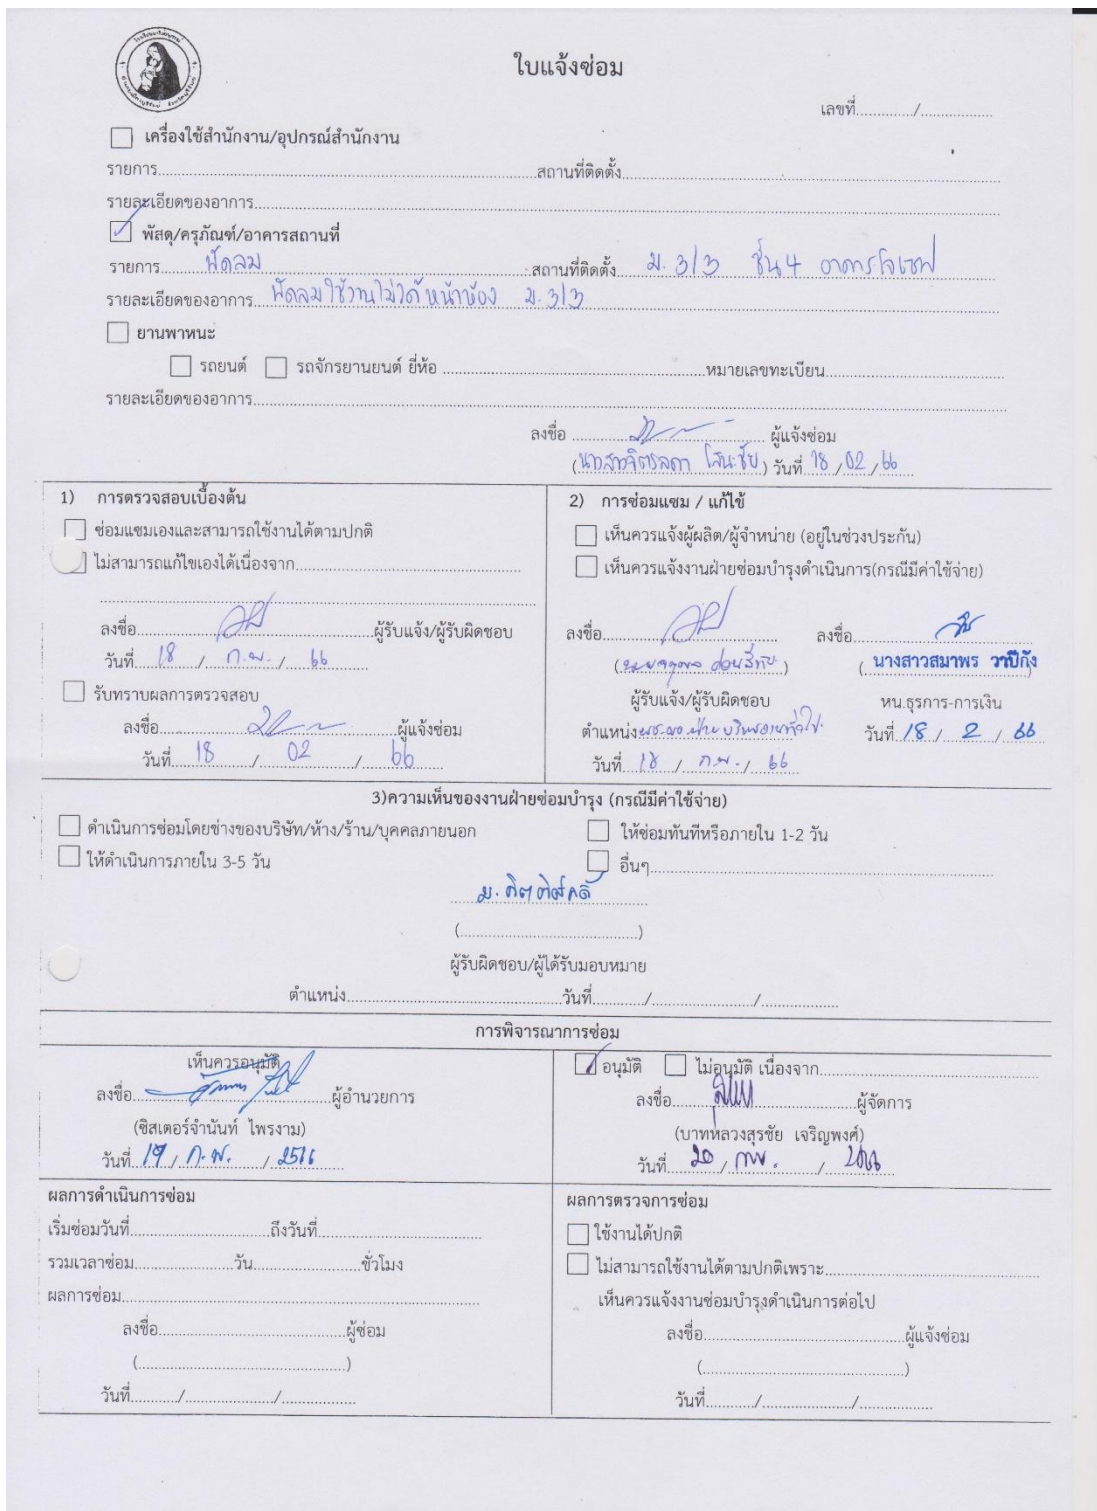 ใบแจ้งซ่อม
เลขที่............/..................
เครื่องใช้สำนักงาน/อุปกรณ์สำนักงาน
รายการ..........สถานที่ติดตั้ง..........
รายละเอียดของอาการ..........
พัสดุ/ครุภัณฑ์/อาคารสถานที่
รายการ พัดลม สถานที่ติดตั้ง ม. 3/3 ชั้น 4 อาคารโจเซฟ
รายละเอียดของอาการ พัดลมใช้งานไม่ได้ หน้าห้อง ม. 3/3
ยานพาหนะ
รถยนต์ รถจักรยานยนต์ ยี่ห้อ ..........หมายเลขทะเบียน..........
รายละเอียดของอาการ..........
ลงชื่อ .......... ผู้แจ้งซ่อม
(นางสาวจิตรลดา โสนะชัย) วันที่ 18 / 02 / 66
1) การตรวจสอบเบื้องต้น
ซ่อมแซมเองและสามารถใช้งานได้ตามปกติ
ไม่สามารถแก้ไขเองได้เนื่องจาก..........
ลงชื่อ..........ผู้รับแจ้ง/ผู้รับผิดชอบ
วันที่ 18 / ก.พ. / 66
รับทราบผลการตรวจสอบ
ลงชื่อ..........ผู้แจ้งซ่อม
วันที่ 18 / 02 / 66
2) การซ่อมแซม / แก้ไข
เห็นควรแจ้งผู้ผลิต/ผู้จำหน่าย (อยู่ในช่วงประกัน)
เห็นควรแจ้งงานฝ่ายซ่อมบำรุงดำเนินการ(กรณีมีค่าใช้จ่าย)
ลงชื่อ.......... ลงชื่อ..........
( นางสาวสมาพร วาปีกัง )
ผู้รับแจ้ง/ผู้รับผิดชอบ หน.ธุรการ-การเงิน
ตำแหน่ง ฝ่ายบริหารงานทั่วไป วันที่ 18 / 2 / 66
วันที่ 18 / ก.พ. / 66
3)ความเห็นของงานฝ่ายซ่อมบำรุง (กรณีมีค่าใช้จ่าย)
ดำเนินการซ่อมโดยช่างของบริษัท/ห้าง/ร้าน/บุคคลภายนอก ให้ซ่อมทันทีหรือภายใน 1-2 วัน
ให้ดำเนินการภายใน 3-5 วัน อื่นๆ..........
ม. กิตติศักดิ์
(..........)
ผู้รับผิดชอบ/ผู้ได้รับมอบหมาย
ตำแหน่ง..........วันที่........../........../..........
การพิจารณาการซ่อม
เห็นควรอนุมัติ
ลงชื่อ..........ผู้อำนวยการ
(ซิสเตอร์จำนันท์ ไพรงาม)
วันที่ 19 / ก.พ. / 2566
อนุมัติ ไม่อนุมัติ เนื่องจาก..........
ลงชื่อ..........ผู้จัดการ
(บาทหลวงสุรชัย เจริญพงศ์)
วันที่ 20 / กพ. / 2566
ผลการดำเนินการซ่อม
เริ่มซ่อมวันที่..........ถึงวันที่..........
รวมเวลาซ่อม..........วัน..........ชั่วโมง
ผลการซ่อม..........
ลงชื่อ..........ผู้ซ่อม
(..........)
วันที่........../........../..........
ผลการตรวจการซ่อม
ใช้งานได้ปกติ
ไม่สามารถใช้งานได้ตามปกติเพราะ..........
เห็นควรแจ้งงานซ่อมบำรุงดำเนินการต่อไป
ลงชื่อ..........ผู้แจ้งซ่อม
(..........)
วันที่........../........../..........